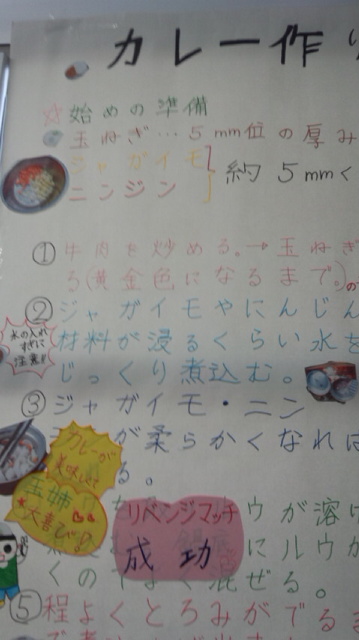 カレー作り
☆始めの準備
玉ねぎ…5mm位の厚み
ジャガイモ
ニンジン
約5mmく
①牛肉を炒める。→玉ねぎ
る(黄金色になるまで。)の
②ジャガイモやにんじん
水の入れすぎに注意!!
材料が浸るくらい水を
じっくり煮込む。
③ジャガイモ・ニン
が柔らかくなれば
る。
カレーが
美味しくて
玉姉
大喜び!
リベンジマッチ
成功
ウが溶け
にルウが
くの
混ぜる。
⑤程よくとろみがでる